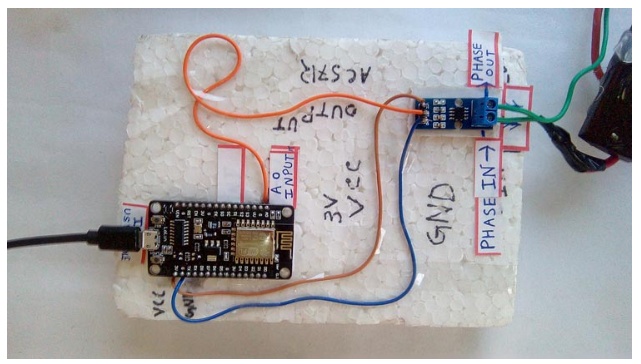 ACS712
OUTPUT
PHASE OUT
A0
INPUT
3V
VCC
GND
PHASE IN →
VCC
GND